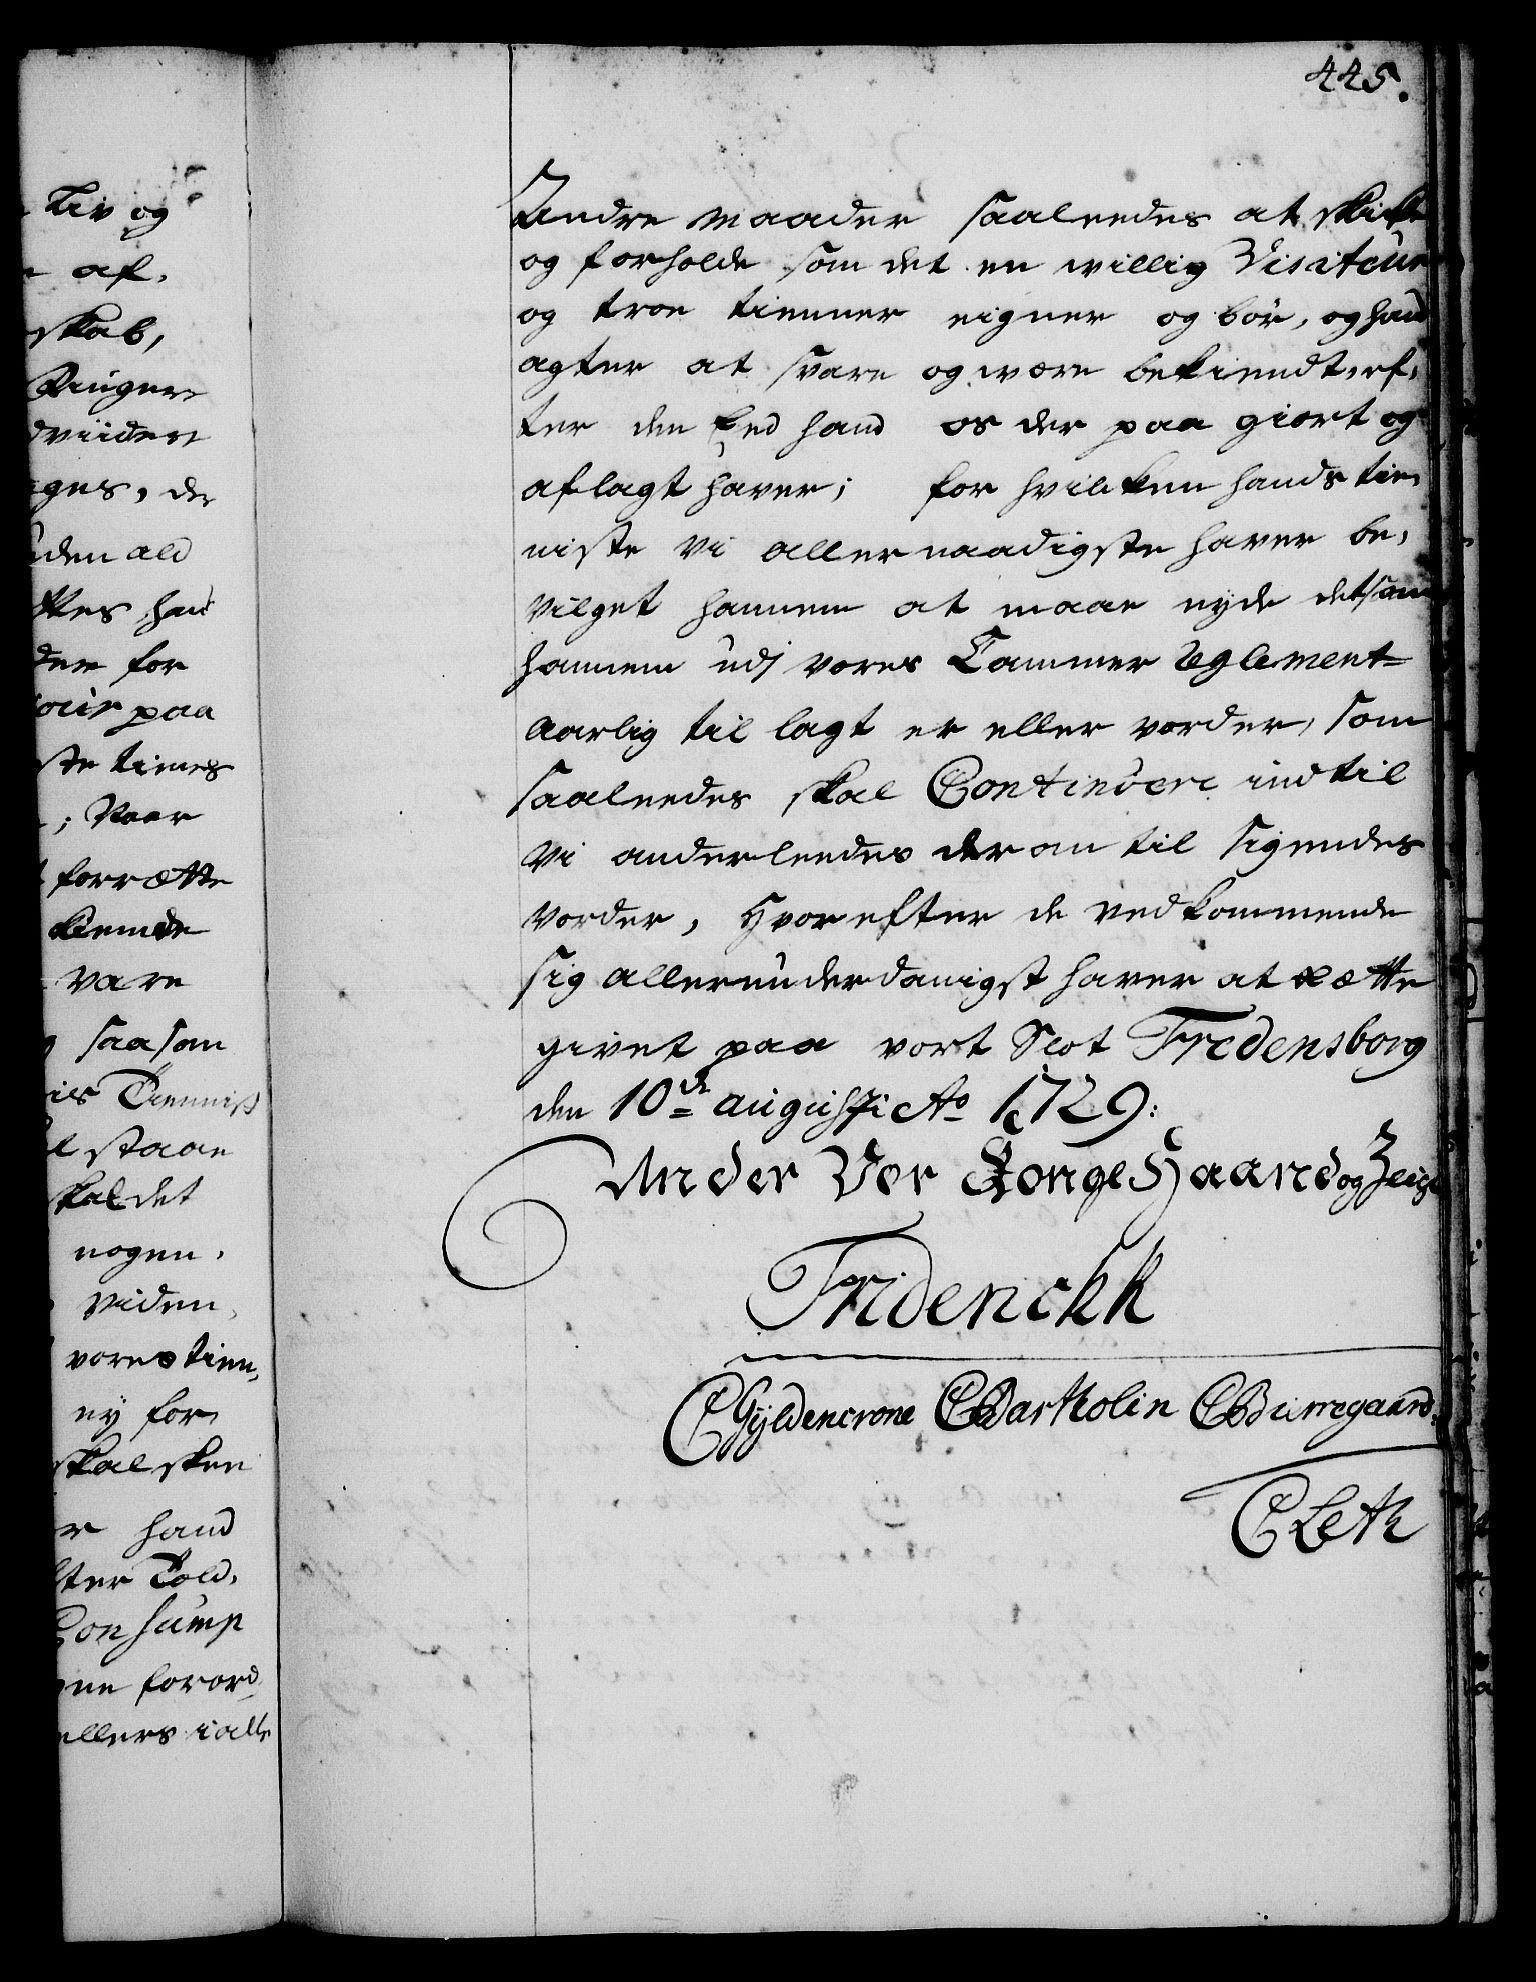 445.
Andre maader saaleedes at skicke
og forholde som det en willig Visiteur
og troe tienner eigner og bör, og hand
agter at svare og wære bekiendt, ef,
ter den Eed hand os der paa giort og
aflagt haver; for hvilcken hands tie,
niste vi allernaadigste haver be,
vilget hannem at maae nyde det som
hannem udj vores Cammer Reglement
aarlig til lagt er eller vorder, som
saaleedes skal Continuere ind til
vi anderleedes der om til sigendes
vorder, Hvorefter de vedkommende
sig allerunderdanigst haver at rætte
givet paa vort Slot Fredensborg
den 10de augusti Ao 1729:
Under Vor Konge Haand og Zeigl
Friderich R
C Gyldencrone C Bartholin C Bierregaard:
C Leth
Liv og
af,
skab,
dviiden
den ald
der for
paa
ste tienes
forrætte
vare
saa som
staae
skal det
nogen,
viden,
vores tien,
ny for,
skal skee
hand
ter Told,
Consump
ne forord,
ellers i alle